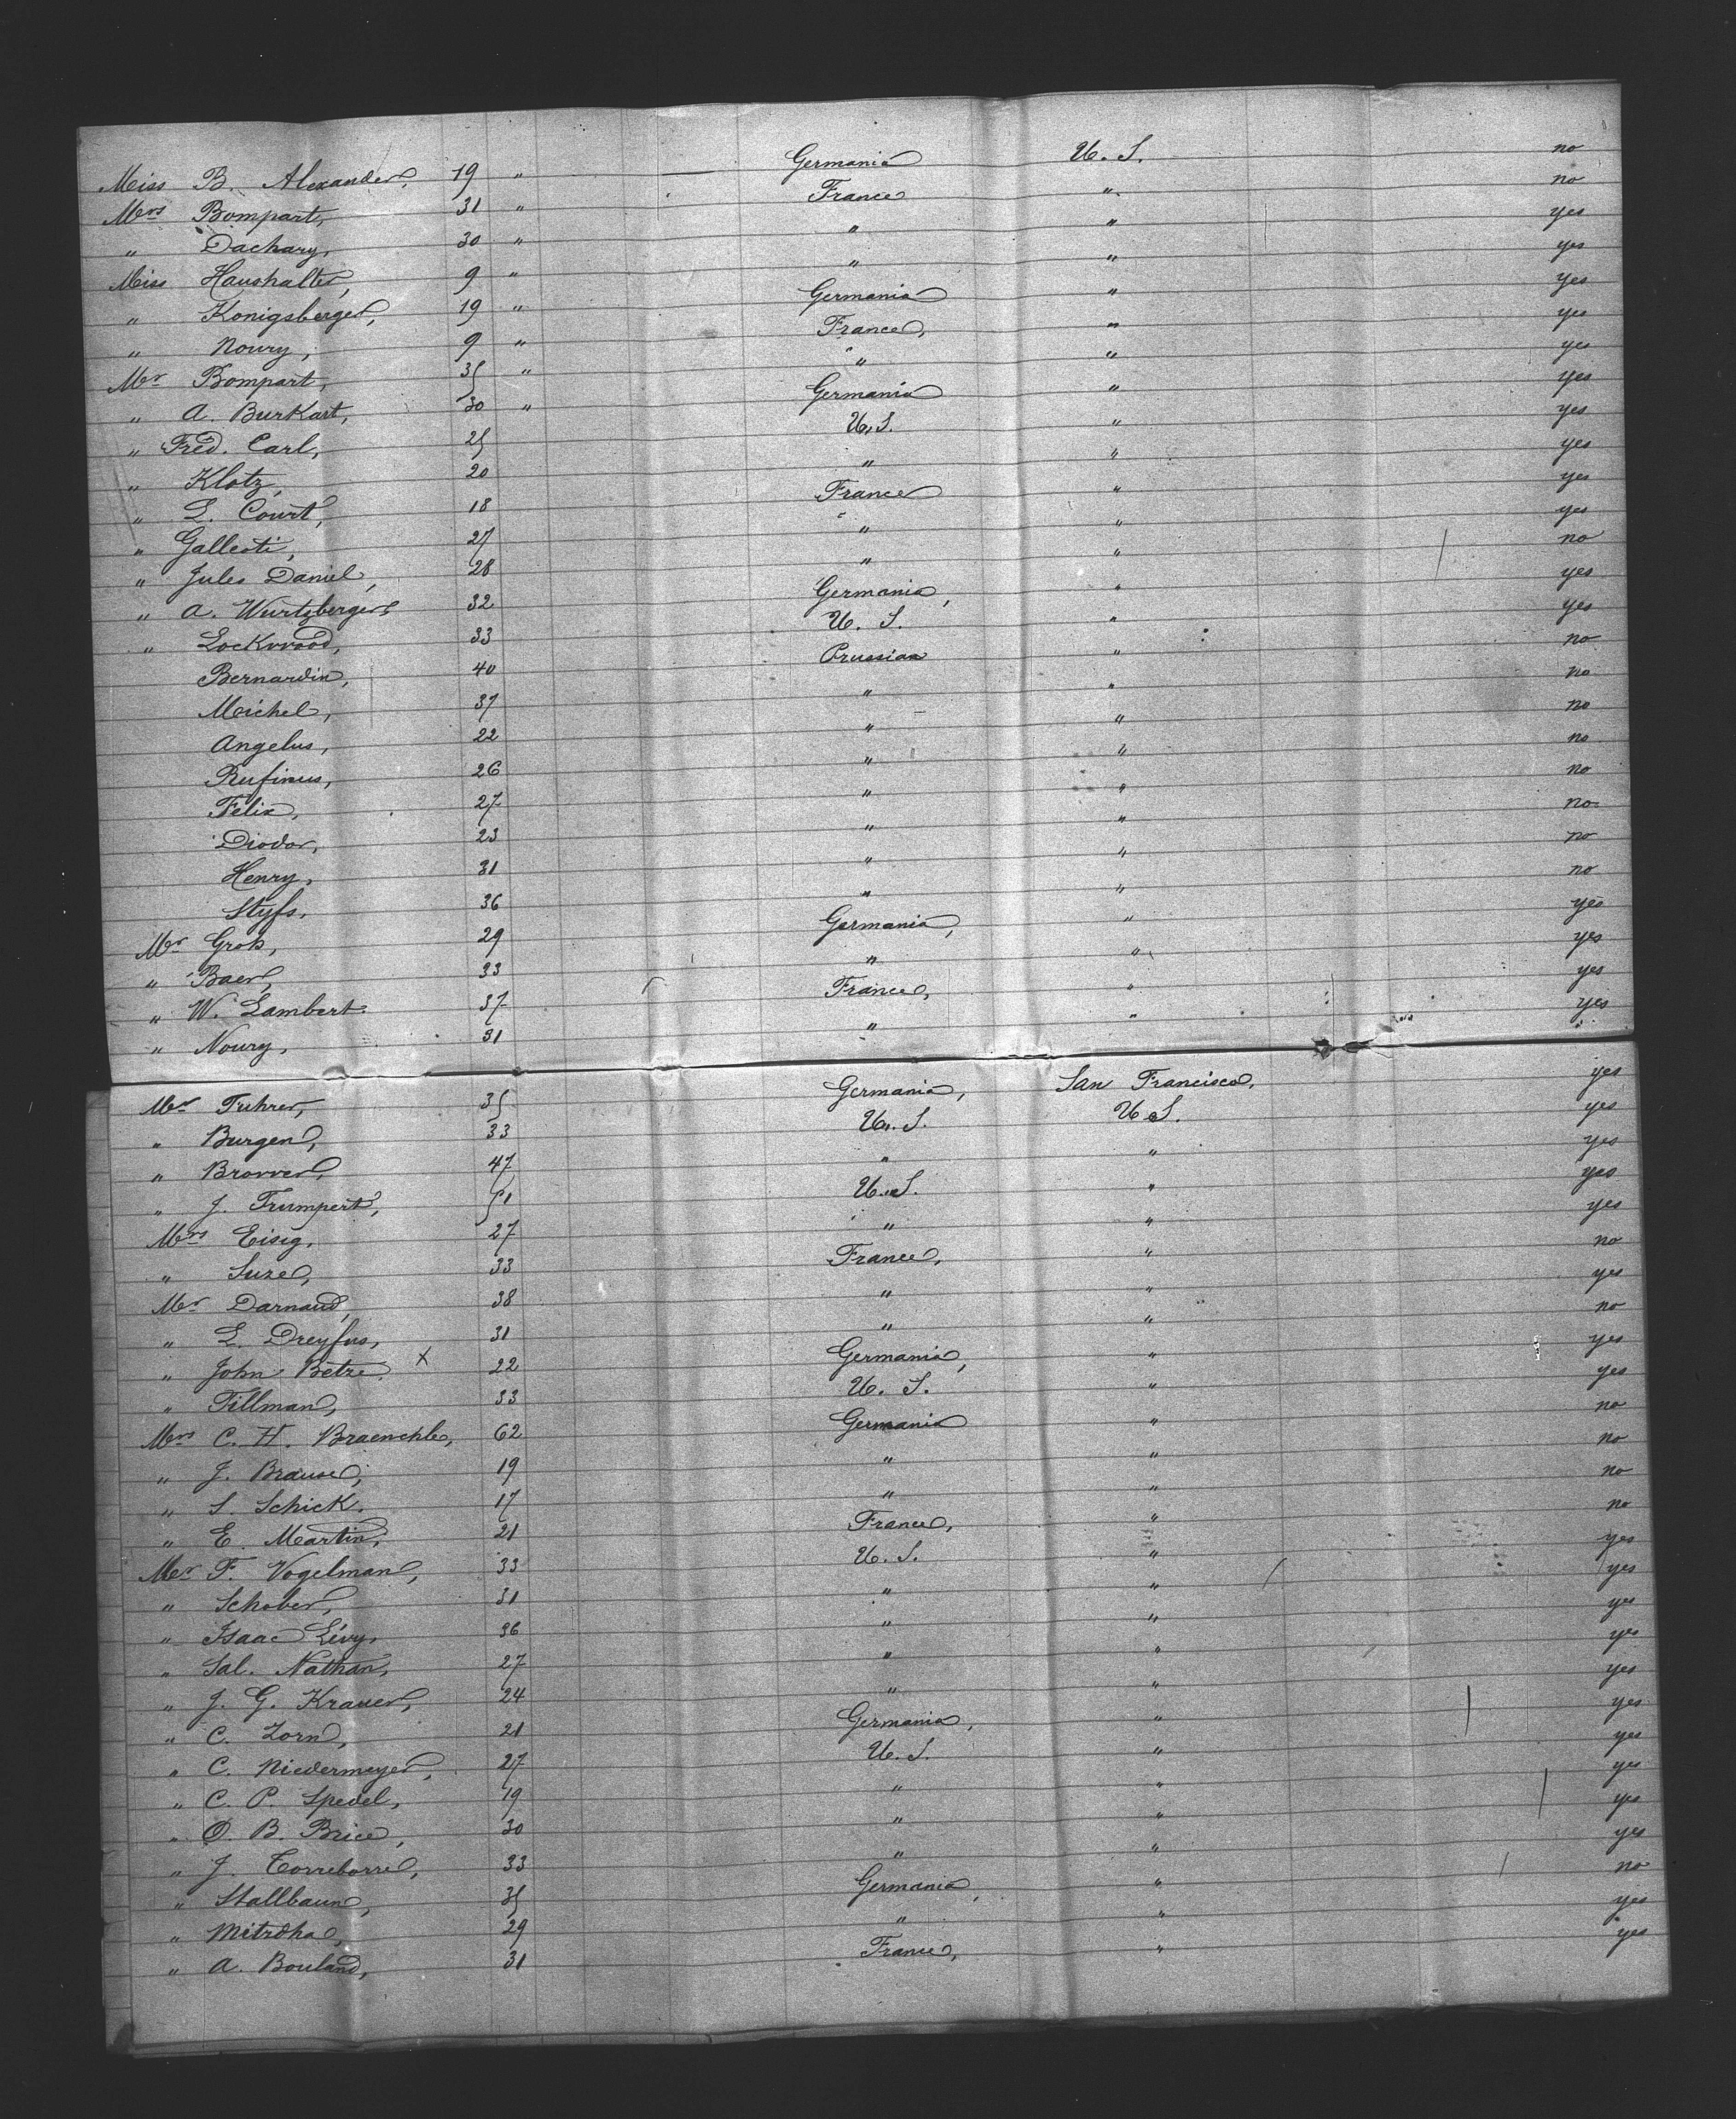 Miss B. Alexander, 19 " Germania U. S. no
Mrs Bompart, 31 " France " no
" Dachary, 30 " " " yes
Miss Haushalter, 9 " " " yes
" Konigsberger, 19 " Germania " yes
" Noury, 9 " France, " yes
Mr Bompart, 35 " " " yes
" A. Burkart, 30 " Germania " yes
" Fred. Carl, 25 U. S. " yes
" Klotz, 20 " " yes
" L. Court, 18 France " yes
" Galleoti, 27 " " yes
" Jules Daniel, 28 " " no
" A. Wurtzberger, 32 Germania, " yes
" Lockwood, 33 U. S. " yes
Bernardin, 40 Prussian " no
Michel, 37 " " no
Angelus, 22 " " no
Rufinus, 26 " " no
Felix, 27 " " no
Diodor, 23 " " no
Henry, 31 " " no
Styfs, 36 " " no
Mr Grob, 29 Germania, " yes
" Baer, 33 " " yes
" W. Lambert. 37 France, " yes
" Noury, 31 " " yes
Mr Fuhrer, 35 Germania, San Francisco, yes
" Burgen, 33 U. S. U. S. yes
" Brower, 47 " " yes
" J. Trumpert, 51 U. S. " yes
Mrs Eisig, 27 " " yes
" Suze, 33 France, " no
Mr Darnaud, 38 " " yes
" L. Dreyfus, 31 " " no
" John Betze. X 22 Germania, " yes
" Tillman, 33 U. S. " yes
Mrs C. H. Braenchle, 62 Germania " no
" J. Brause, 19 " " no
" S. Schick. 17 " " no
" E. Martin, 21 France, " no
Mr F. Vogelman, 33 U. S. " yes
" Schober, 31 " " yes
" Isaac Lévy, 36 " " yes
" Sal. Nathan, 27 " " yes
" J. G. Krauer, 24 " " yes
" C. Zorn, 21 Germania, " yes
" C. Niedermeyer, 27 U. S. " yes
" C. P. Spedel, 19 " " yes
" O. B. Brice, 30 " " yes
" J. Correborre, 33 " " yes
" Stallbaum, 35 Germania, " no
" 29 " " yes
" A. Bouland, 31 France, " yes